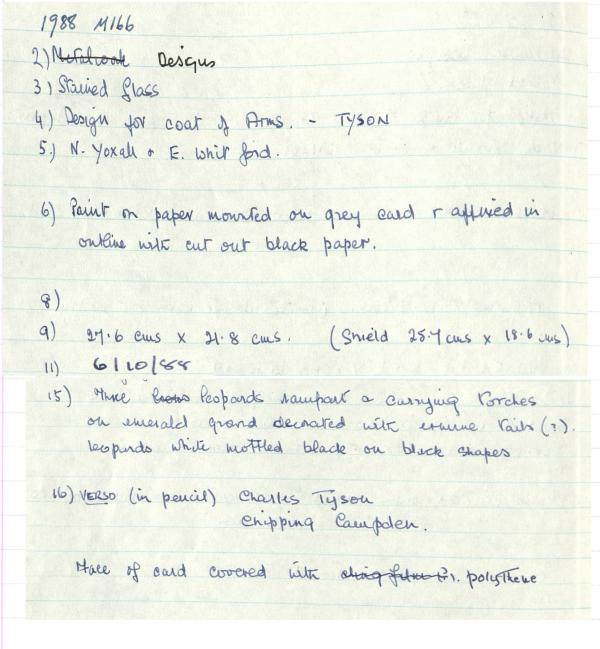 1988 M166
2) Metalwork Designs
3) Stained Glass
4) Design for coat of Arms. - TYSON
5.) N. Yoxall & E. Whitford.
6) Paint on paper mounted on grey card & affixed in
outline with cut out black paper.
8)
9) 27.6 cms x 21.8 cms. (Shield 25.7 cms x 18.6 cms)
11) 6/10/88
15) Three lions leopards rampart & carrying torches
on emerald ground decorated with ermine tails (?).
leopards white mottled black on black shapes
16) VERSO (in pencil) Charles Tyson
Chipping Campden.
Face of card covered with cling film (?). polythene